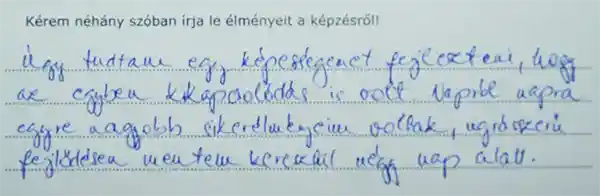 Kérem néhány szóban írja le élményeit a képzésről!
Úgy tudtam egy képességemet fejleszteni, hogy
az egyben kikapcsolódás is volt. Napról napra
egyre nagyobb sikerélményeim voltak, ugrásszerű
fejlődésen mentem keresztül négy nap alatt.